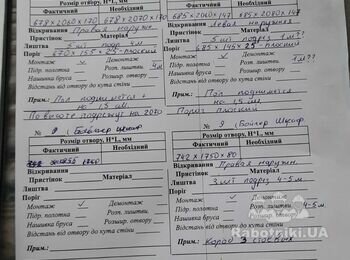 Розмір отвору, H*L, мм
Фактичний Необхідний
678 x 2060 x 170 678 x 2070 x 170
Відкривання Правая наружн.
Пристінок Матеріал
Лиштва 5 шт подр 4м
Поріг 670 x 165 x 25 - плоский
Монтаж Демонтаж
Підр. полотна Розп. лиштви 4м
Нашивка бруса Розшир. отвору
Відстань від отвору до кута стіни
Прим.: Пол подшимется +
на 1,5 см.
По высоте подрежут на 2070
Розмір отвору, H*L, мм
Фактичний Необхідний
685 x 2060 x 147 685 x 2080 x 147
Відкривання Левая наружн
Пристінок Матеріал
Лиштва 5 шт подр 1м??
Поріг 685 x 146 x 25 - плоский
Монтаж Демонтаж
Підр. полотна Розп. лиштви 1м??
Нашивка бруса Розшир. отвору
Відстань від отвору до кута стіни
Прим.: Пол подшимется
на 1,5 см.
Порог плоский
№ 8
Розмір отвору, H*L, мм
Фактичний Необхідний
Відкривання
Пристінок Матеріал
Лиштва
Поріг
Монтаж Демонтаж
Підр. полотна Розп. лиштви
Нашивка бруса Розшир. отвору
Відстань від отвору до кута стіни
Прим.:
№ 9
Розмір отвору, H*L, мм
Фактичний Необхідний
742 x 1750 x 80
Відкривання Правая наружн.
Пристінок Матеріал
Лиштва 3 шт подрез 4-5м
Поріг
Монтаж Демонтаж
Підр. полотна Розп. лиштви 4-5м
Нашивка бруса Розшир. отвору
Відстань від отвору до кута стіни
Прим.: Короб 3
Rabotniki.UA